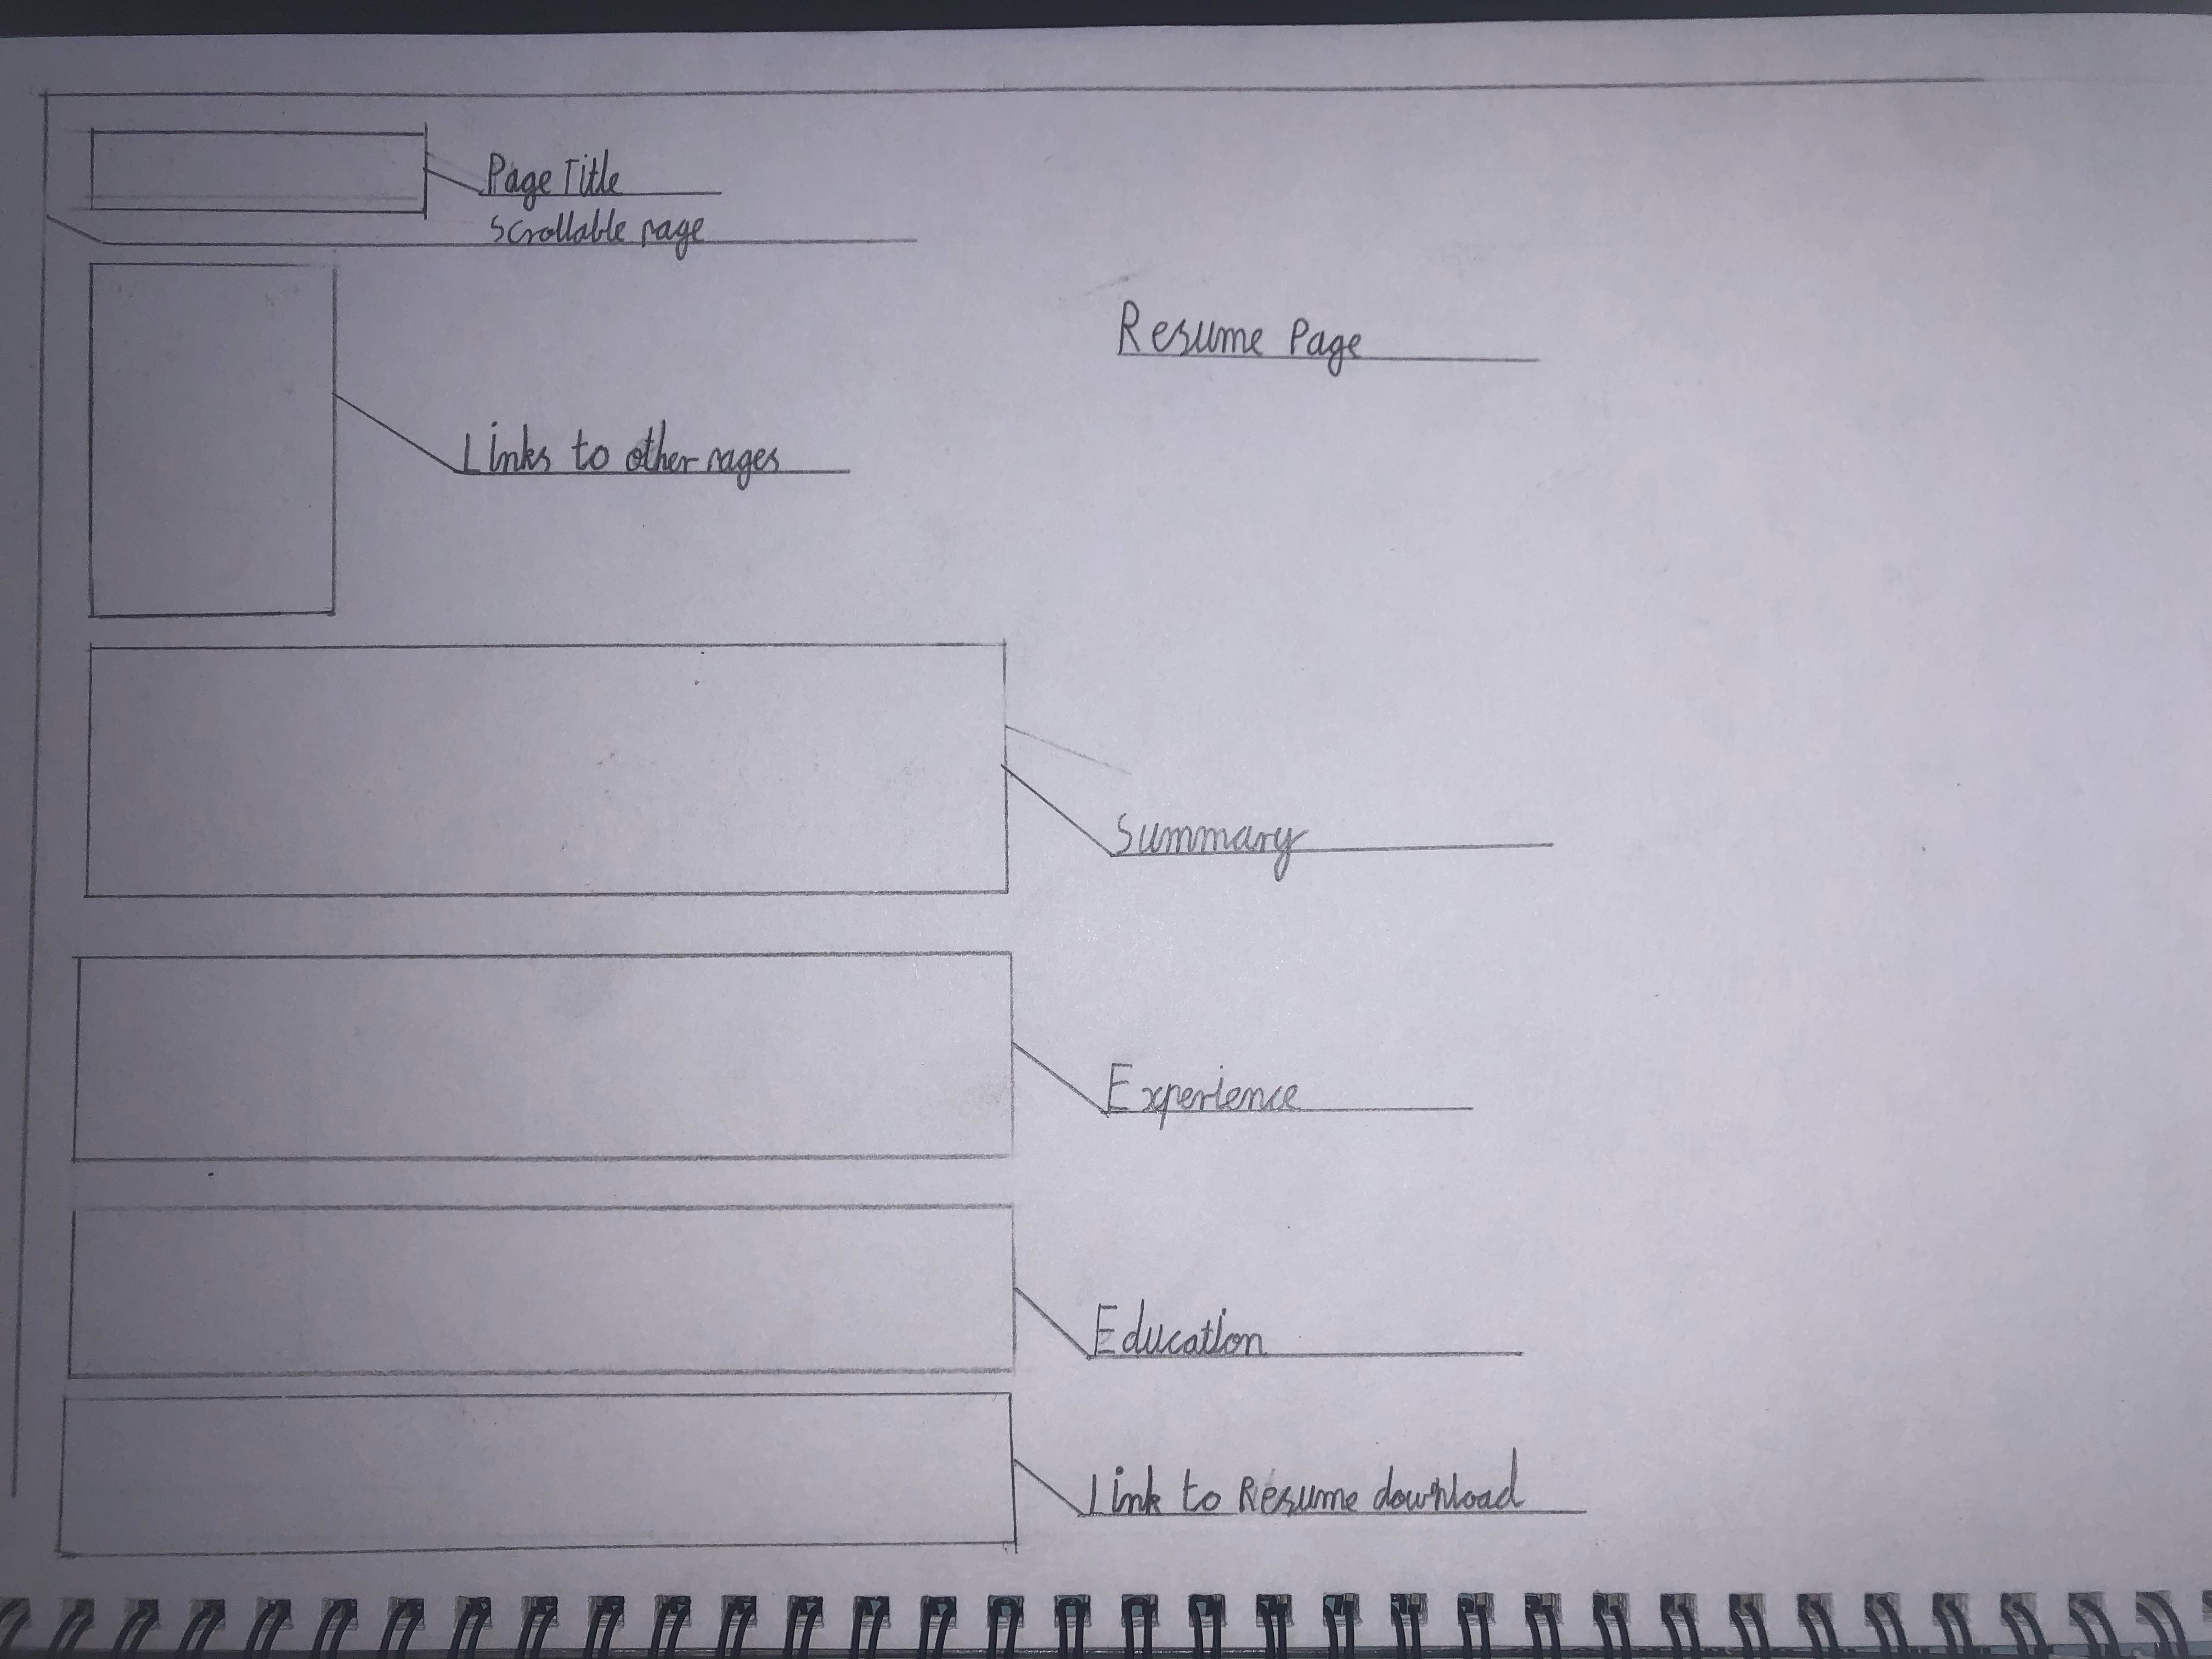 Page Title
Scrollable page
Resume Page
Links to other pages
Summary
Experience
Education
Link to Resume download